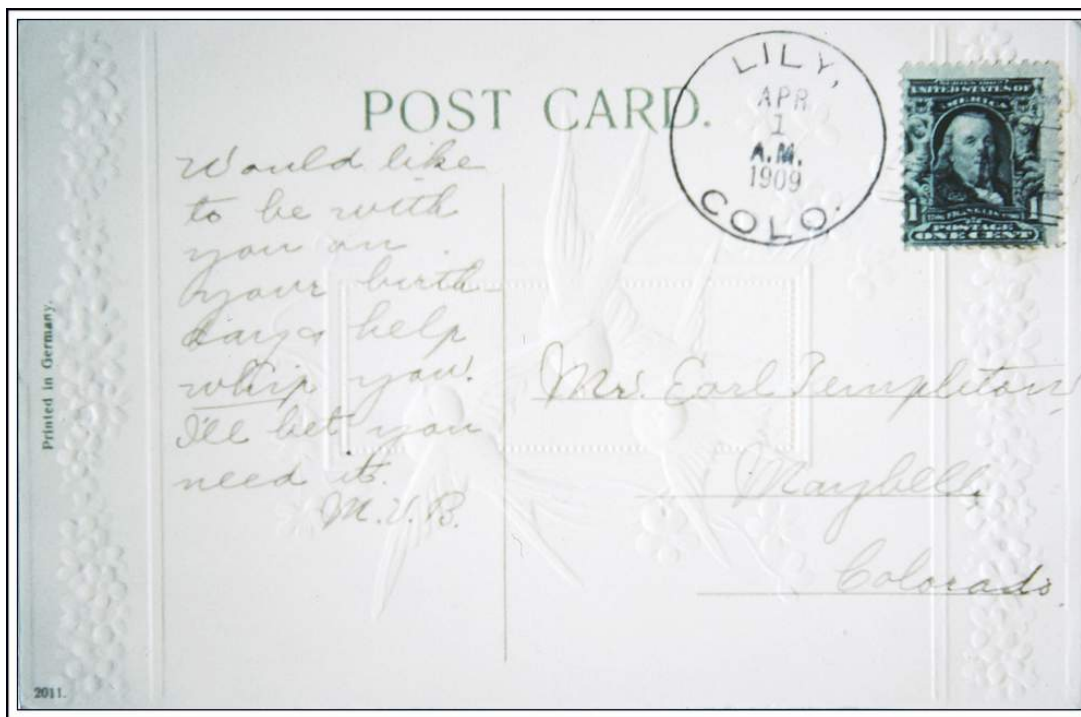 POST CARD.
LILY,
APR
1
A.M.
1909
COLO.
SERIES 1902
UNITED STATES OF
AMERICA
FRANKLIN
1 POSTAGE 1
ONE CENT
Would like
to be with
you on
your birth
day & help
whip you.
I'll bet you
need it.
M.V.B.
Mr. Earl Templeton,
Maybell,
Colorado.
Printed in Germany.
2011.